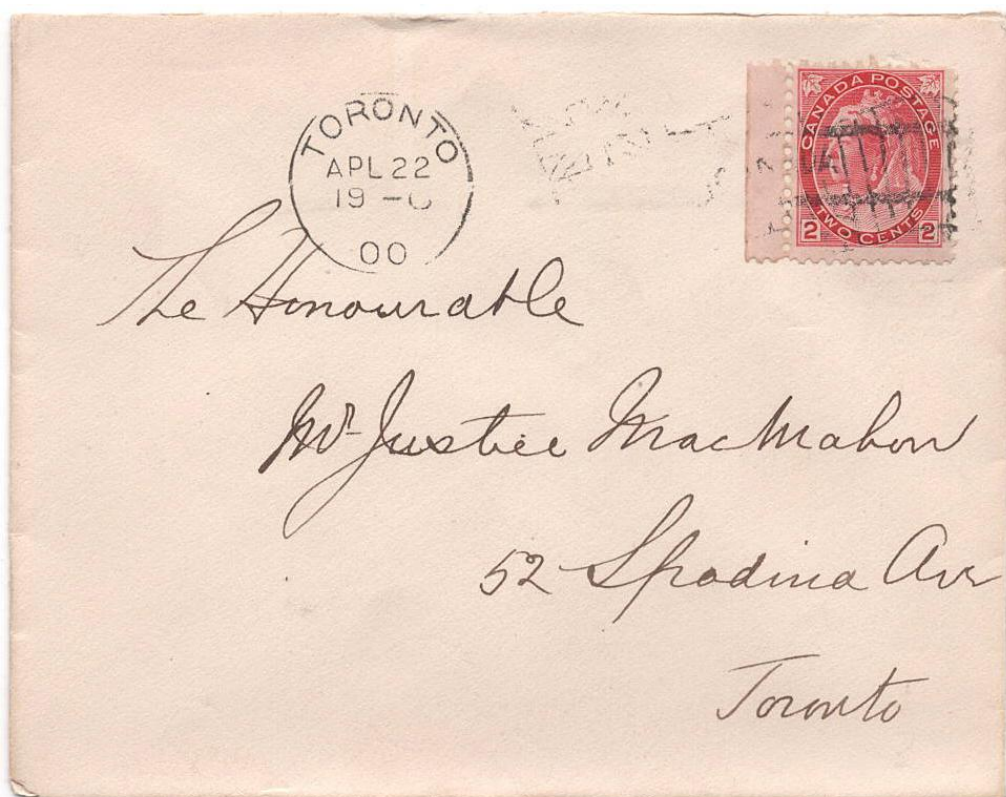 TORONTO
APL 22
19 -
00
CANADA POSTAGE
TWO CENTS
2 2
The Honourable
Mr Justice MacMahon
52 Spadina Ave
Toronto